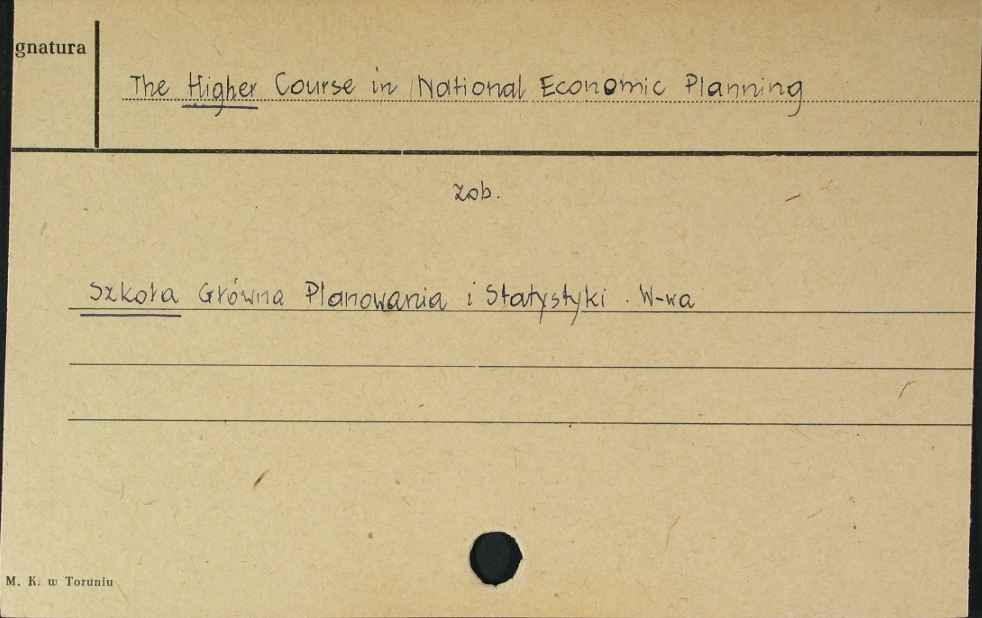 gnatura
The Higher Course in National Economic Planning
zob.
Szkoła Główna Planowania i Statystyki. W-wa
M. K. w Toruniu